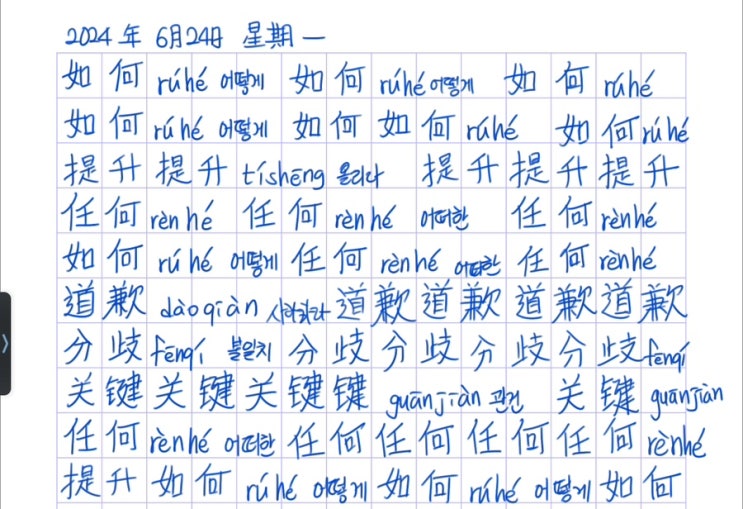 2024年 6月24日 星期一
如何 rúhé 어떻게 如何 rúhé 어떻게 如何 rúhé
如何 rúhé 어떻게 如何如何 rúhé 如何 rúhé
提升提升 tíshēng 올리다 提升提升提升
任何 rèn hé 任何 rèn hé 어떠한 任何 rènhé
如何 rú hé 어떻게 任何 rènhé 어떠한 任何 rènhé
道歉 dàoqiàn 사과하다 道歉道歉道歉道歉
分歧 fēnqí 불일치 分歧分歧分歧分歧 fēnqí
关键关键关键键 guānjiàn 관건 关键 guānjiàn
任何 rènhé 어떠한 任何任何任何任何 rènhé
提升如何 rú hé 어떻게 如何 rúhé 어떻게 如何